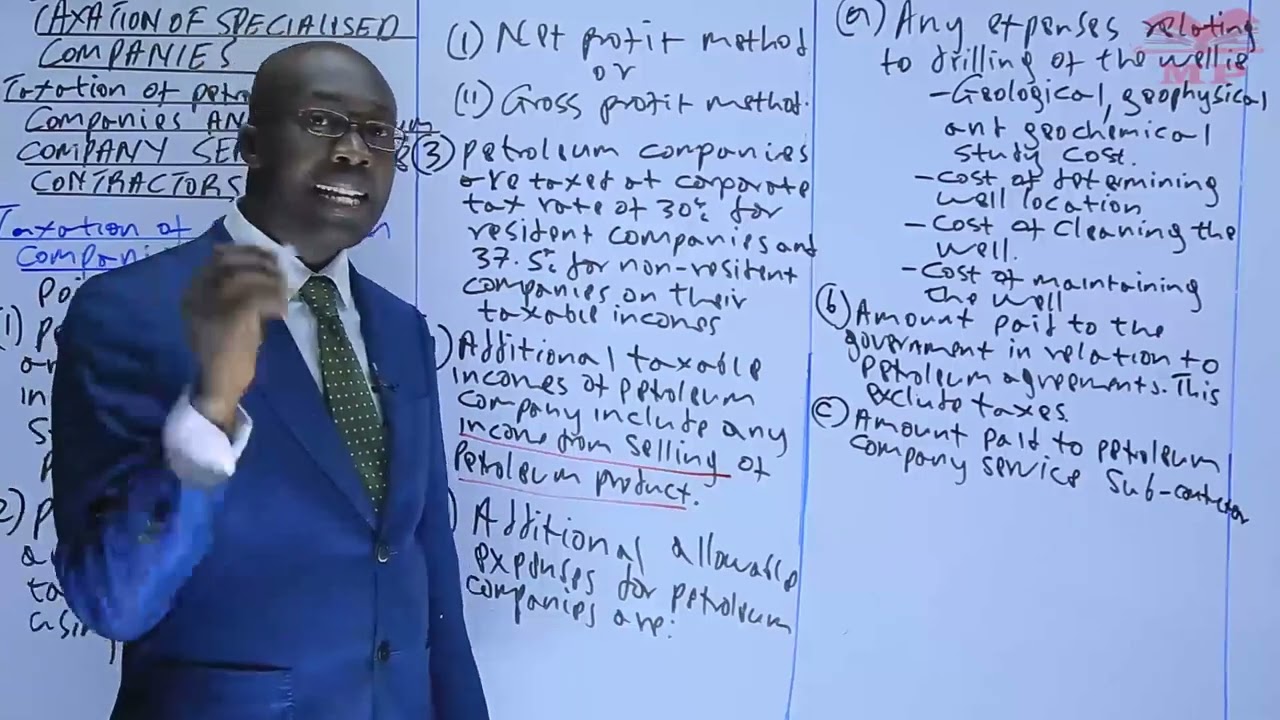 TAXATION OF SPECIALISED
COMPANIES
Taxation of
Companies
COMPANY
CONTRACTORS
Taxation of
(1)
in
2)
(I) Net profit method
or
(II) Gross profit method.
(3) Petroleum companies
are taxed at corporate
tax rate of 30% for
resident companies and
37.5% for non-resident
companies on their
taxable incomes
) Additional taxable
incomes of petroleum
company include any
income from selling of
petroleum product.
) Additional allowable
expenses for petroleum
companies are:
(a) Any expenses relating
to drilling of the well ie
- Geological, geophysical
and geochemical
study cost.
- Cost of determining
well location
- Cost of cleaning the
well.
- Cost of maintaining
the well
(b) Amount paid to the
government in relation to
petroleum agreements. This
exclude taxes.
(c) Amount paid to petroleum
company service sub-contractor
MP